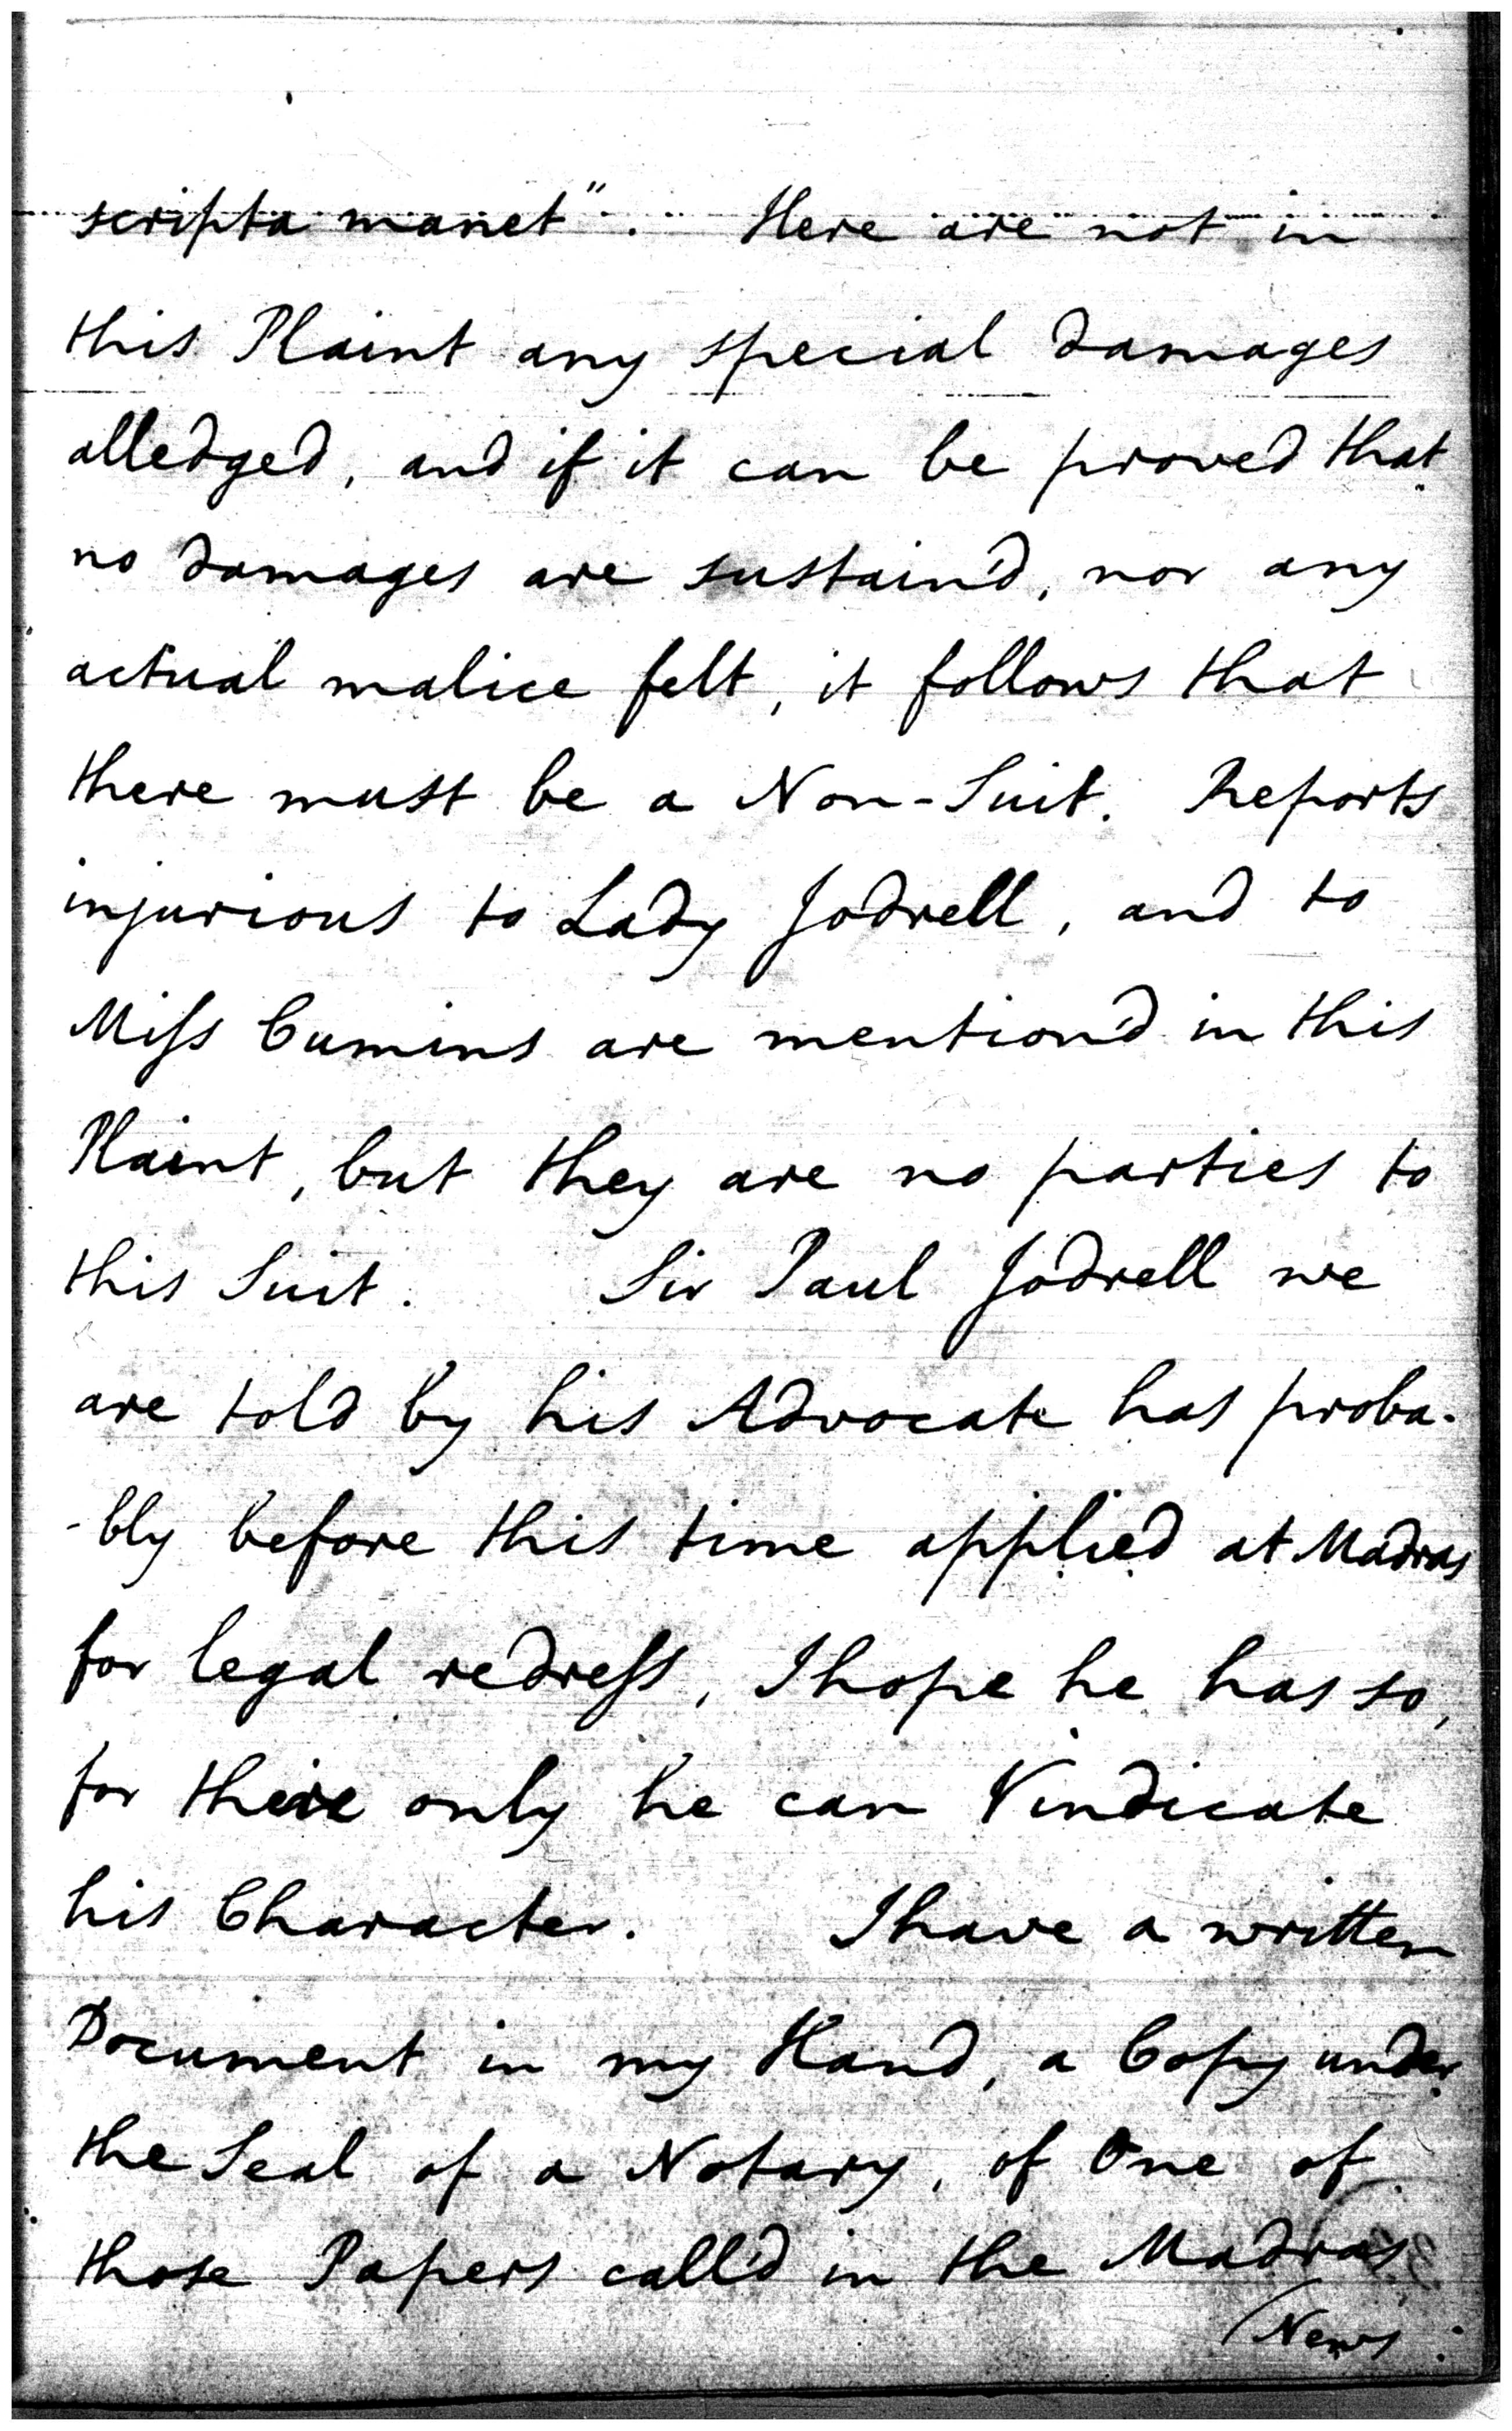 scripta manet". Here are not in
this Plaint any special damages
alledged, and if it can be proved that
no damages are sustain'd, nor any
actual malice felt, it follows that
there must be a Non-Suit. Reports
injurious to Lady Jodrell, and to
Miſs Cumins are mention'd in this
Plaint, but they are no parties to
this Suit. Sir Paul Jodrell we
are told by his Advocate has proba-
-bly before this time applied at Madras
for legal redreſs, I hope he has so,
for there only he can Vindicate
his Character. I have a written
Document in my Hand, a Copy under
the Seal of a Notary, of One of
those Papers call'd in the Madras
News